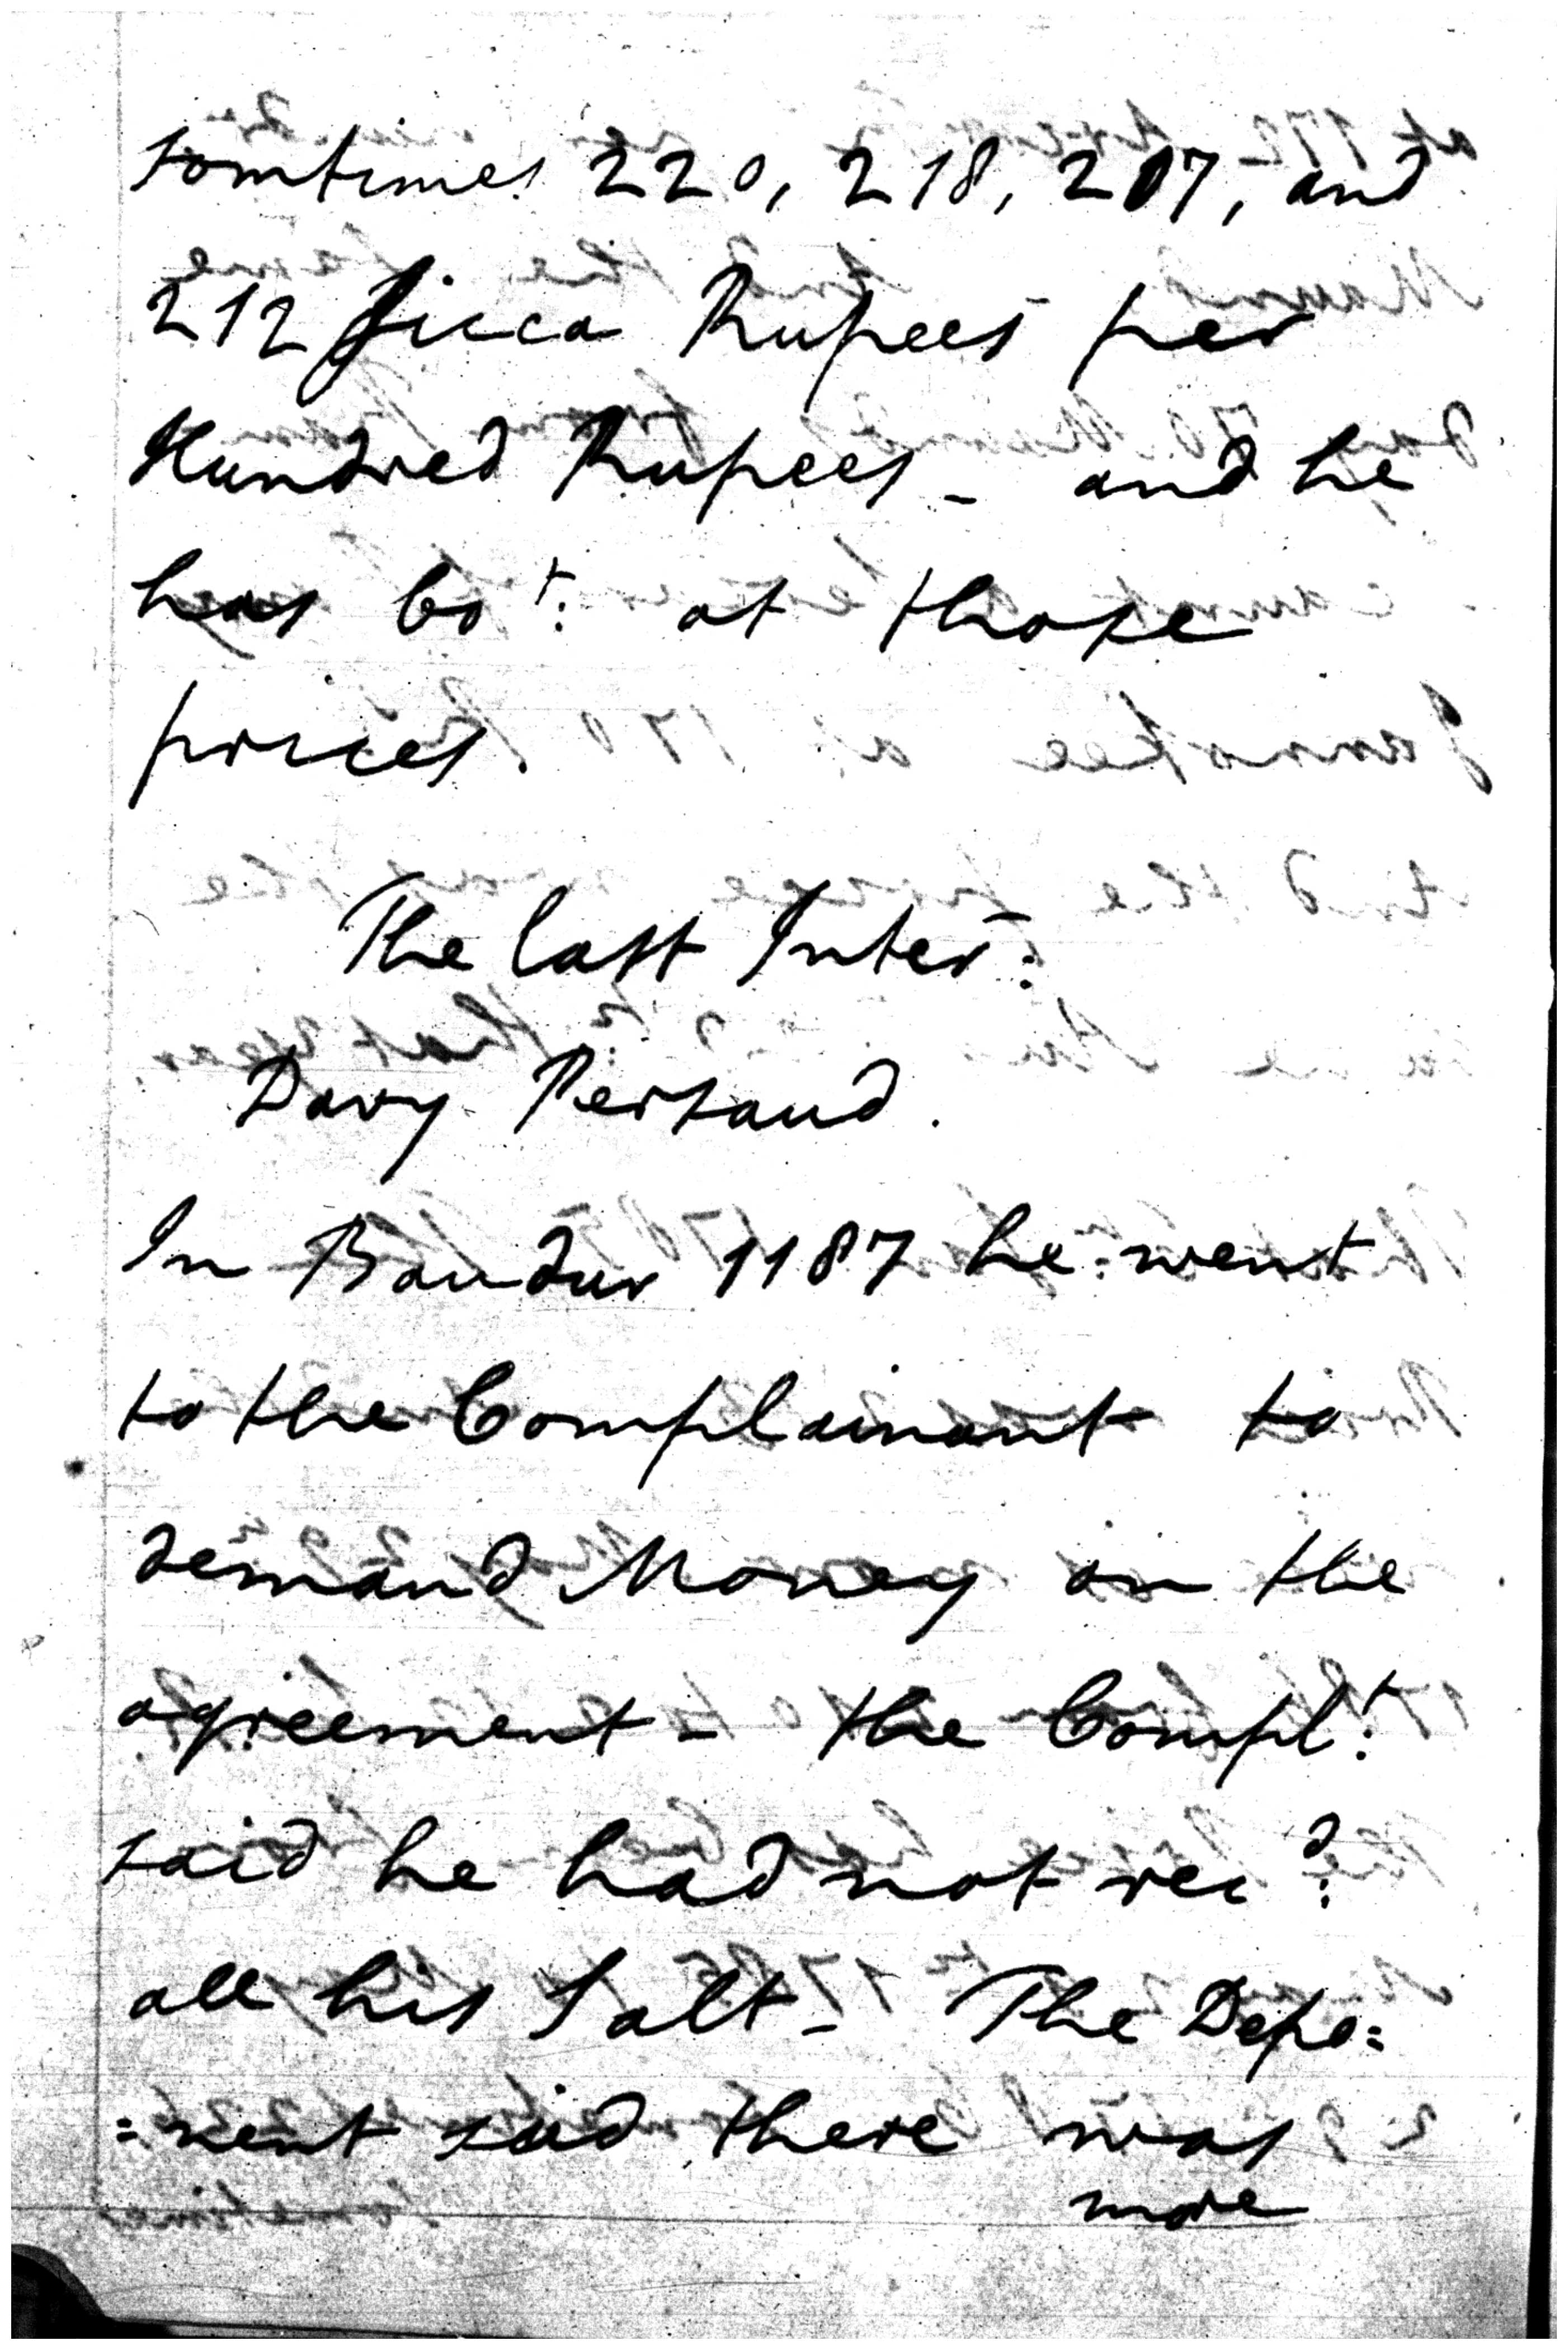 somtimes 220, 218, 217, and
212 Sicca Rupees per
Hundred Rupees - and he
has bot: at those
prices.
The last Inter:
Davy Persaud.
In Baudur 1187 he went
to the Complainant to
demand Money on the
agreement - the Complt:
said he had not recd:
all his Salt - The Depo=
=nent said there was
more